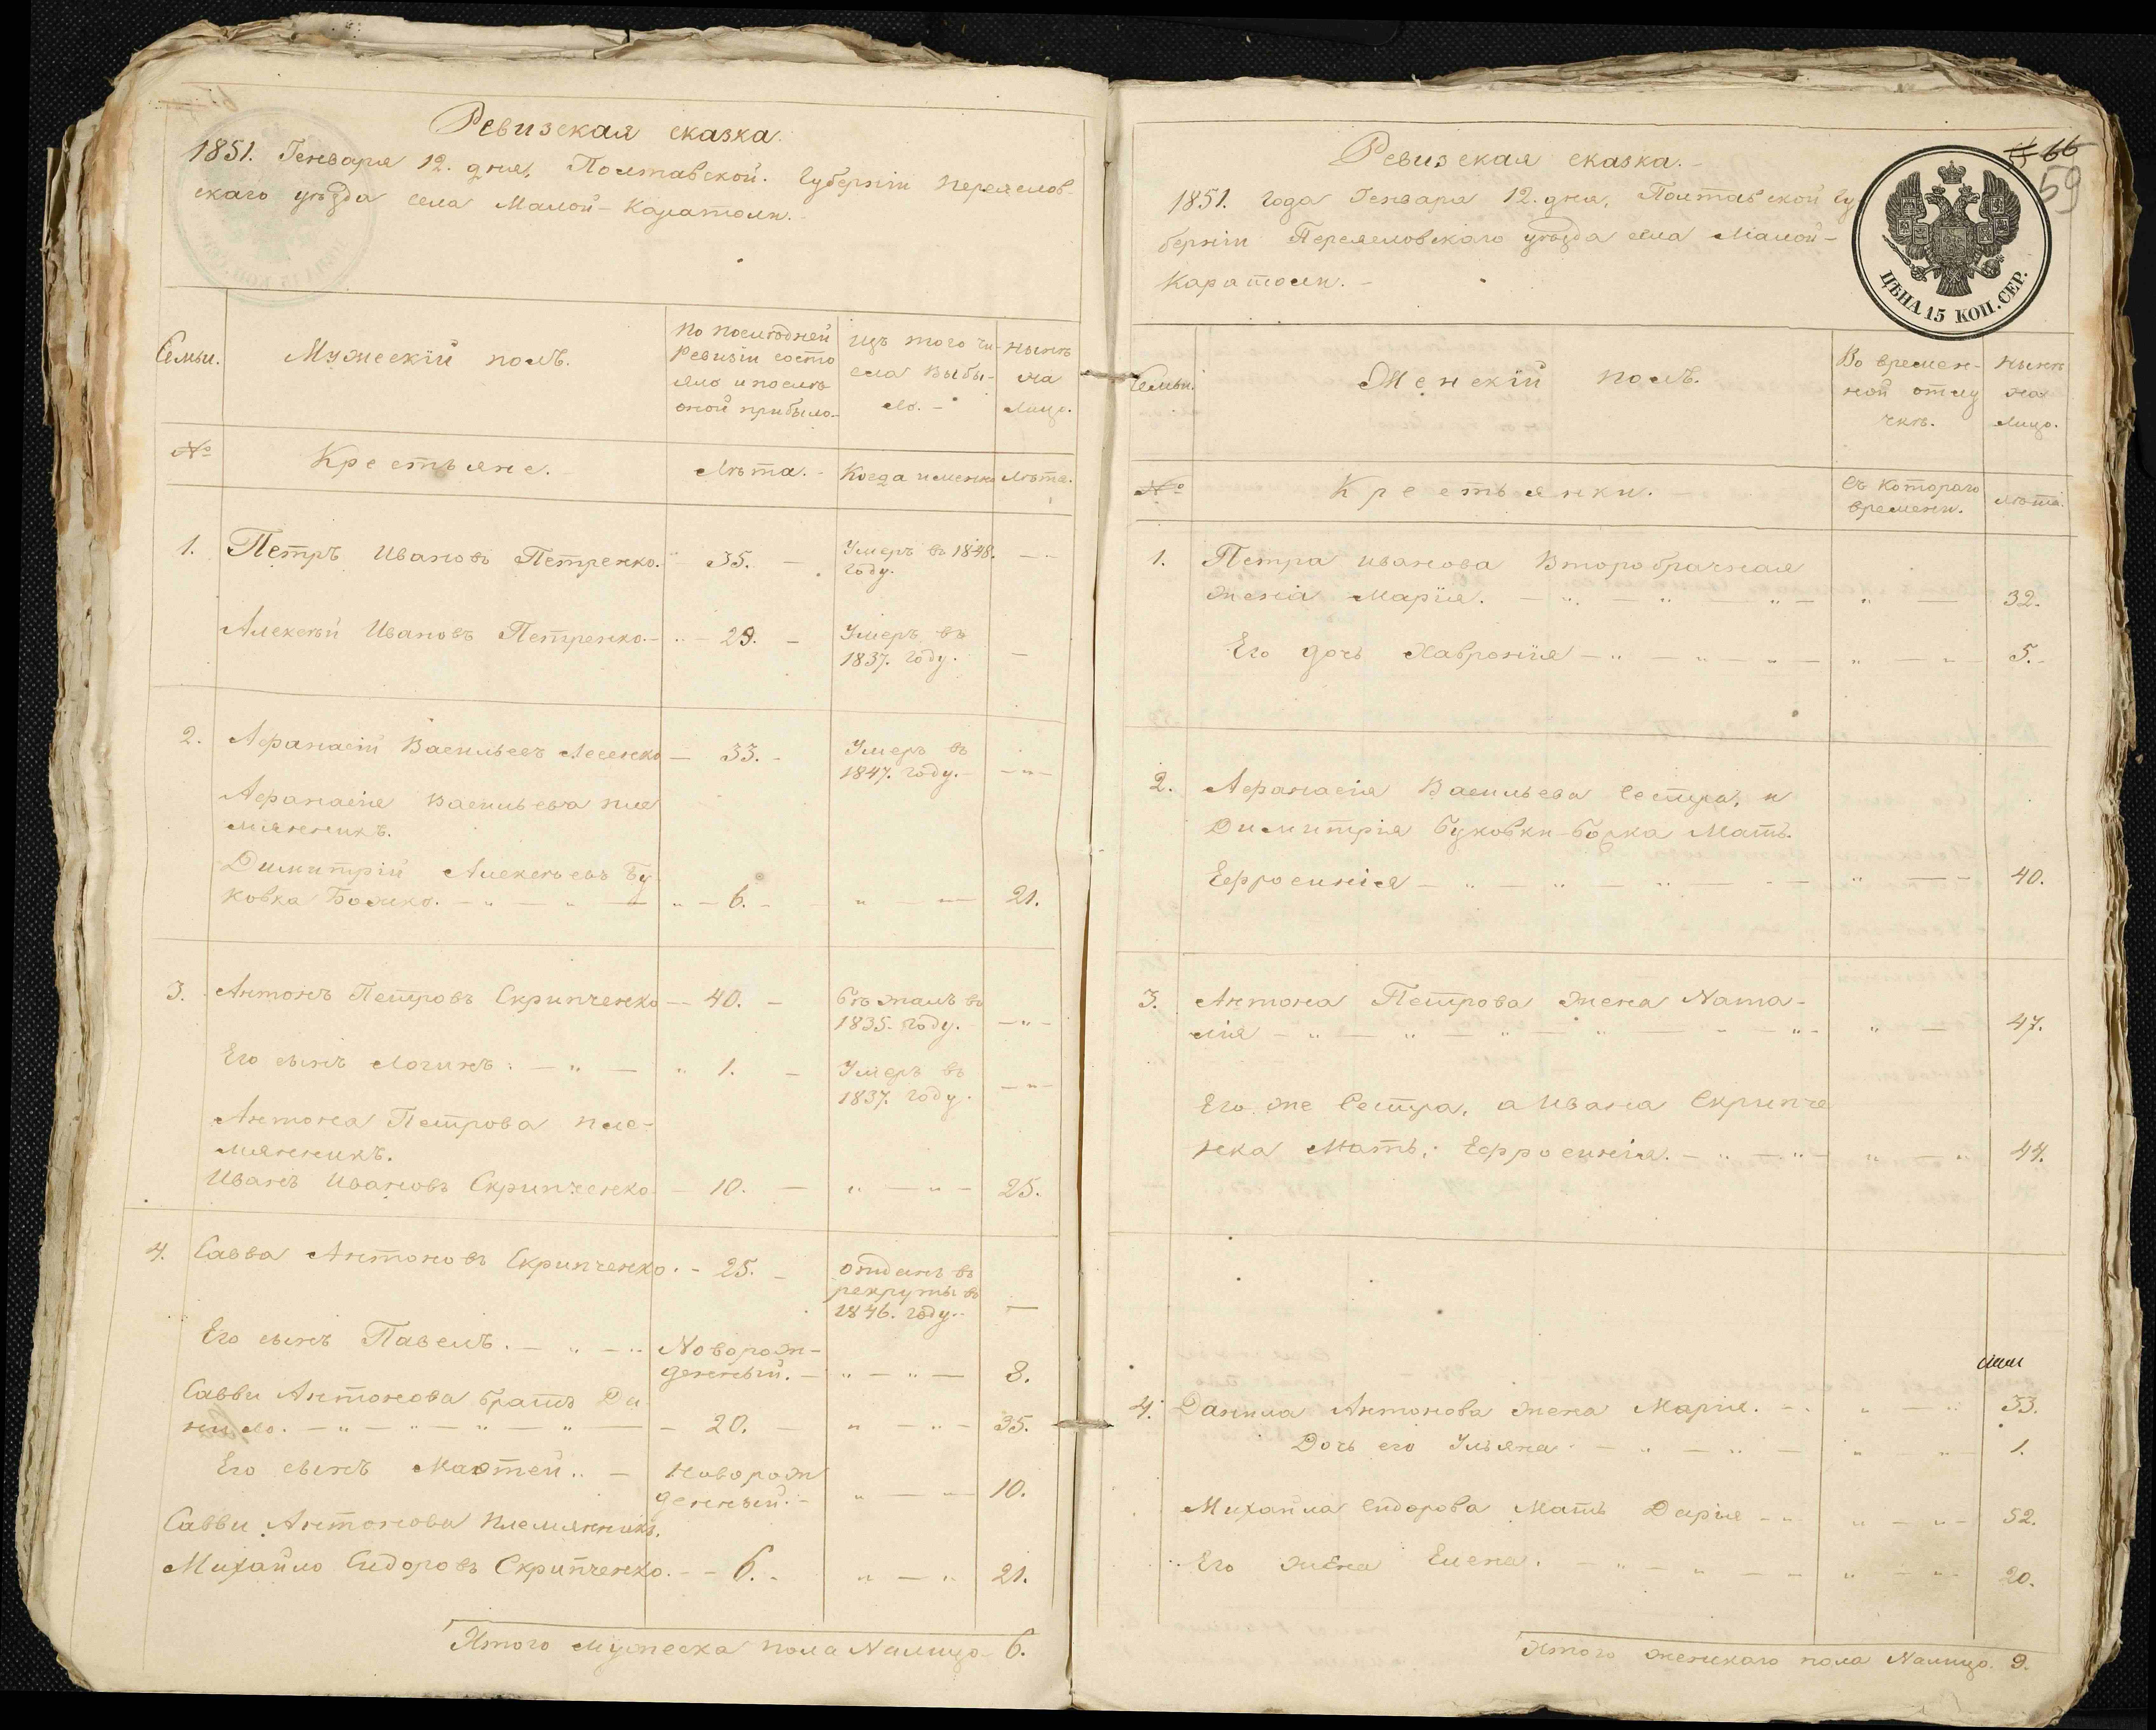 Ревизская сказка.
1851. Генваря 12. дня, Полтавской. Губернiи Переяслов-
скаго уѣзда села Малой-Каратоли.
Семьи.
Мужескiй полъ.
По послѣдней
Ревизiи состо
яло и послѣ
оной прибыло.
Изъ того чи-
сла выбы-
ло. -
Нынѣ
на
лицо.
№
Крестьяне.
Лѣта. -
Когда именно
Лѣта.
1. Петръ Ивановъ Петренко. 35. — Умеръ въ 1848.
году.
Алексѣй Ивановъ Петренко. - 29. - Умеръ въ
1837. году.
2. Афанасiй Васильевъ Лесенко — 33. - Умеръ въ
1847. году. -
Афанасiя Васильева пле
мянникъ.
Димитрiй Алексѣевъ Бу
ковка Божко. — 6. - 21.
3. Антонъ Петровъ Скрипченко — 40. — Бѣжалъ въ
1835. году.
Его сынъ Логинъ. — 1. — Умеръ въ
1837. году.
Антона Петрова пле-
мянникъ.
Иванъ Ивановъ Скрипченко — 10. — 25.
4. Савва Антоновъ Скрипченко. - 25. — отданъ въ
рекруты въ
1846. году.
Его сынъ Павелъ. — Новорож-
денный. — 8.
Саввы Антонова братъ Да
нило. — 20. — 35.
Его сынъ Мактей. — Новорож
денный. - 10.
Саввы Антонова племянникъ.
Михайло Сидоровъ Скрипченко. - 6. - 21.
Итого мужеска пола Налицо - 6.
66
59
Ревизская сказка. -
1851. года Генваря 12. дня, Полтавской Гу
бернiи Переясловскаго уѣзда села Малой-
Каратоли. -
ЦѢНА 15 КОП. СЕР.
Семьи.
Женскiй полъ.
Во времен-
ной отлу
чкѣ.
Нынѣ
на
лицо.
№
Крестьянки.
Съ котораго
времени.
лѣта.
1. Петра Иванова Второбрачная
жена Марiя. — 32.
Его дочь Хавронiя — 5. -
2. Афанасiя Васильева Сестра, и
Димитрiя Буковки-Божка Мать.
Ефросинiя — 40.
3. Антона Петрова жена Ната-
лiя — 47.
Его же Сестра, а Ивана Скрипче
нка Мать, Ефросинiя. — 44.
4. Данила Антонова жена Марiя. - 33.
Дочь его Ульяна — 1.
Михайла Сидорова Мать Дарiя - 52.
Его жена Елена. — 20.
Итого женскаго пола Налицо. 9.